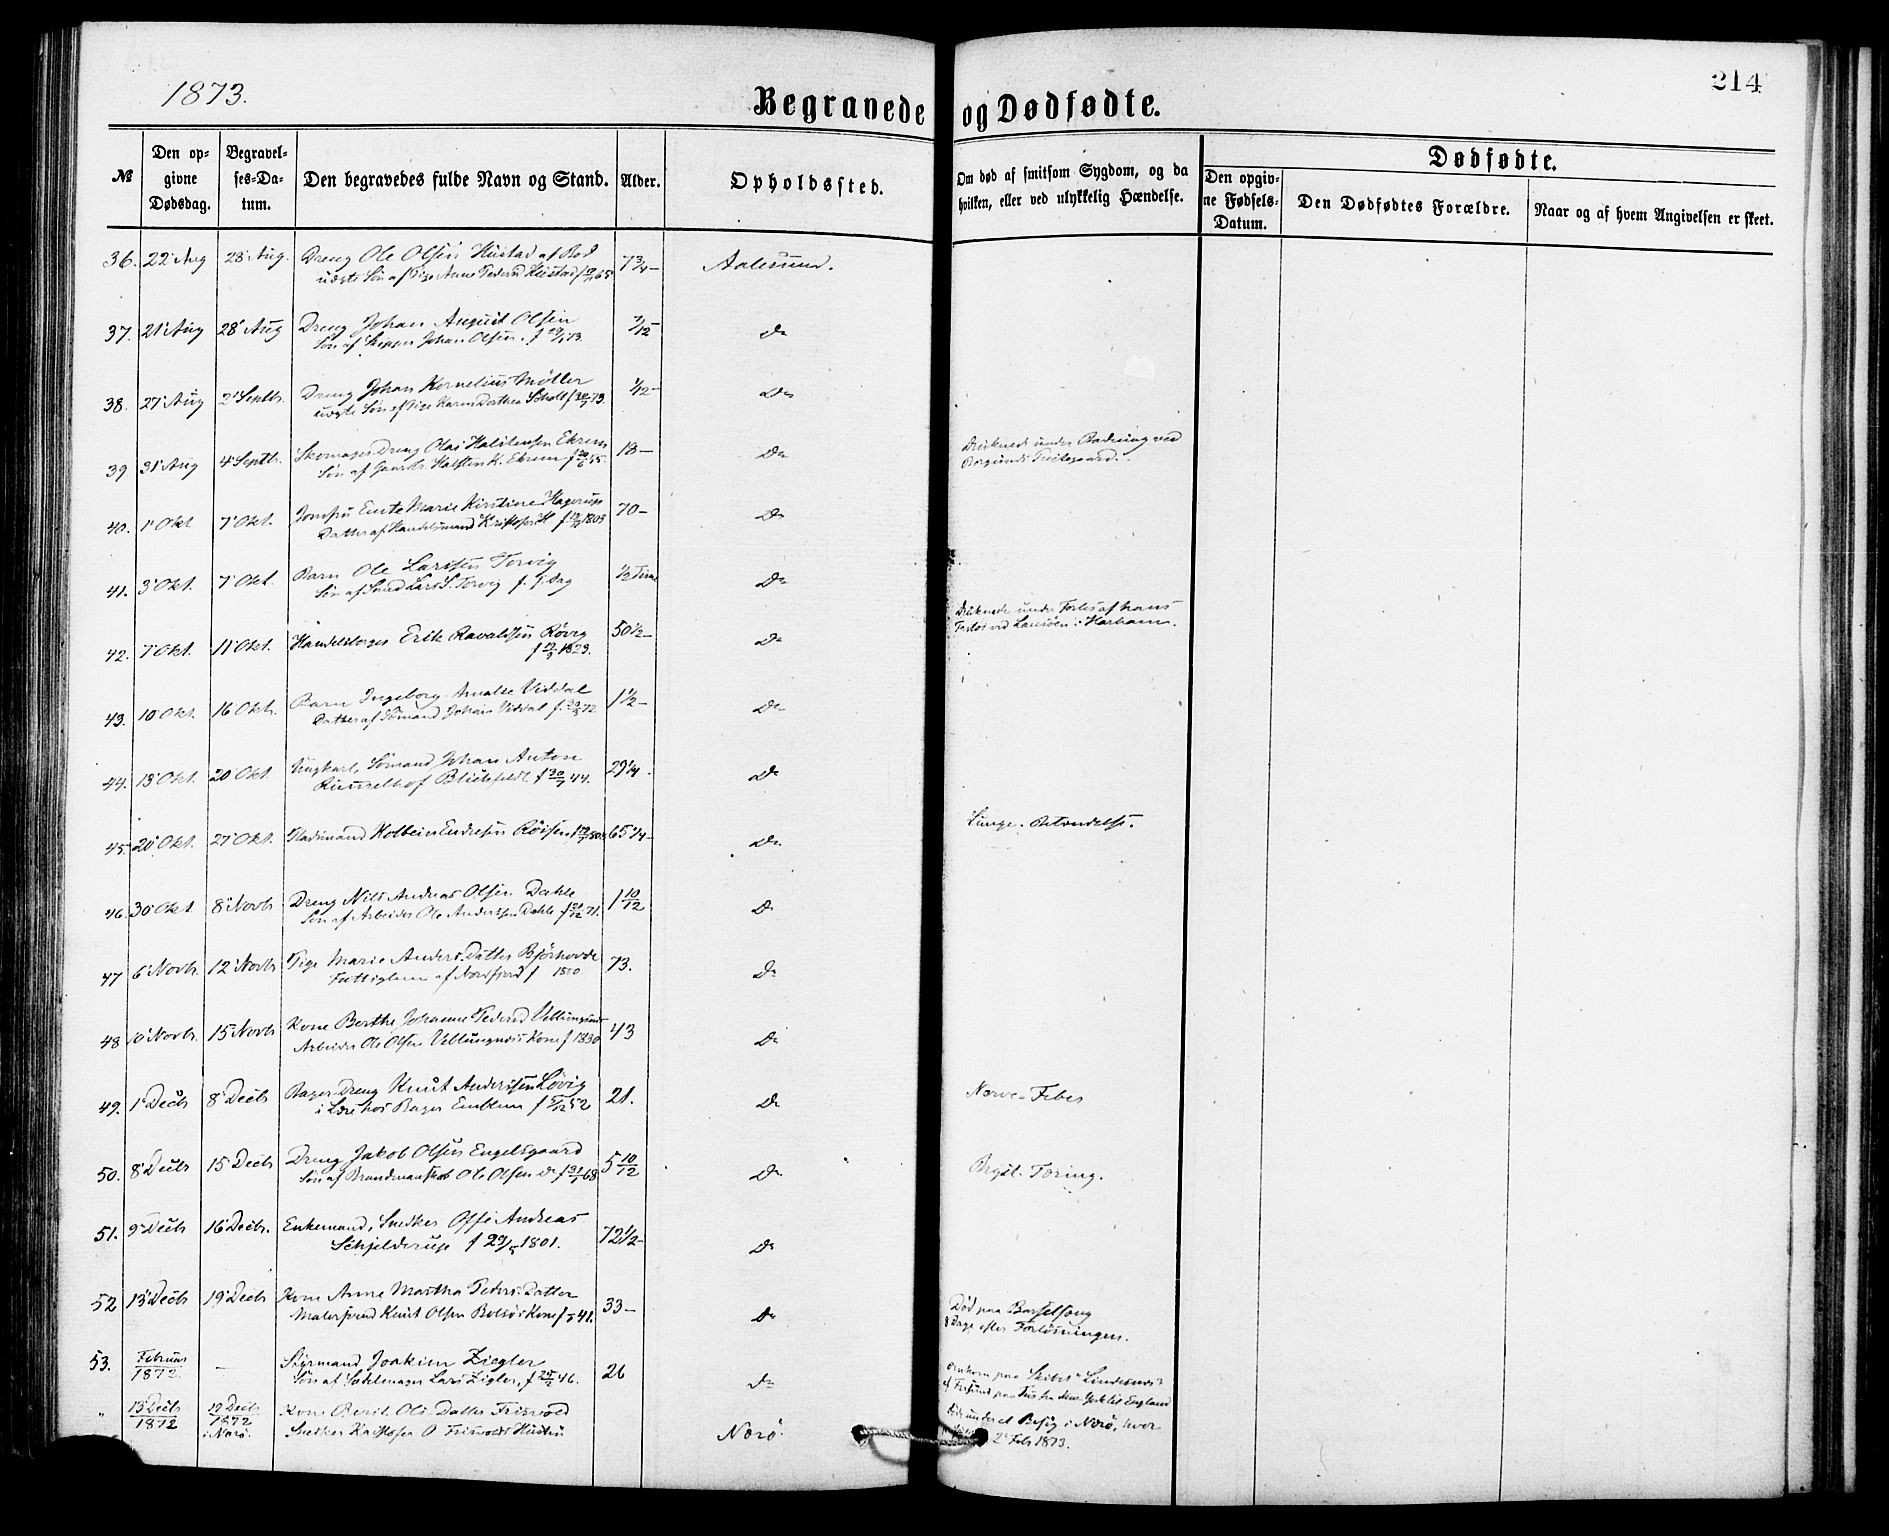 1873.
Begravede og Dødfødte.
214
№
Den opgivne Dødsdag.
Begravelses-Datum.
Den begravedes fulde Navn og Stand.
Alder.
Opholdssted.
Om død af smitsom Sygdom, og da hvilken, eller ved ulykkelig Hændelse.
Dødfødte.
Den opgivne Fødsels-Datum.
Den Dødfødtes Forældre.
Naar og af hvem Angivelsen er skeet.
36. 22 Aug 28 Aug. Dreng Ole Olsen Hustad af Bod 7 3/4 – Aalesund.
uægte Søn af Pige Anne Pedersd Hustad
37. 21 Aug 28 Aug Dreng Johan August Olsen 7/12 – Do
Søn af Skipper Johan Olsen. f 73.
38. 27 Aug 2 Septb. Dreng Johan Kornelius Møller 1/12 – Do
uægte Søn af Pige Karen Dorthea
39 31 Aug 4 Septb. Skomager Dreng Olai Halstensen Ekrem 18 – Do Druknede under Badning ved
Søn af Halsten K. Ekrem Borgunds Prestegaard.
40. 1 Okt 7 Okt. Jomfru Marie Kirstine Hagerup 70 – Do
Datter af Handelsmand Kristofer H 1803
41. 3 Okt. 7 Okt Barn Ole Larssen Torvig 1/2 Time Do
Søn af Lars S. Torvig f. s. Dag
42. 7 Okt. 11 Okt. Handelsborger Erik Ravaldsen Røvig 50 1/2 – Do Druknede under Forlis af hans
1823. ved i Harham.
43. 10 Okt 16 Okt. Barn Ingeborg Amalie Viddal 1 1/2 – Do
Datter af Sømand Johan Viddal 72
44. 13 Okt. 20 Okt. Ungkarl, Sømand Johan Anton 29 1/4. Do
44.
45. 20 Okt. 27 Okt. Endresen 65 1/4 – Do Lunge-Betændelse.
46. 30 Okt 8 Novb Dreng Nils Andreas Olsen Dahle 1 10/12 Do
Søn af Arbeider Ole Anderssen Dahle 71.
47 6 Novb. 12 Novb Pige Marie Anders Datter 73. Do
Fattiglem af Nordfjord f 1800
48 10 Novb. 15 Novb Kone Berthe Johanne Pedersd Veblungsnes 43 Do
Arbeider Ole Olsen Veblungnes Kone f 1830
49. 1 Decb 8 Decb Bager Dreng Knut Anderssen Løvig 21. Do Nerve-Feber
i Lære hos Bager Emblem f 52
50. 8 Decb 15 Decb Dreng Jakob Olsen Engelsgaard 5 10/12 Do Bryst-Tæring.
Søn af Ole Olsen 68
51. 9 Decb 16 Decb. Enkemand, Snedker Offe Andreas 72 1/2 – Do
Schjelderup f 29/5 1801.
52 13 Decb 19 Decb Kone Anne Martha Peders Datter 33 – Do Død paa Barselseng
Malersvend Knut Olsen Bolsøs Kone 41. 8 Dage efter Forløsningen.
53. Februar 1872. – Styrmand Joakim Ziegler 26 Do Omkom paa Skibet "Lindesnes"
Søn af Sadelmager Lars Zigler, f 46. af paa fra England
" 13 Decb 1872 19 Decb 1872 i Nærø. Kone Berit Ols Datter Frisvold Nærø. under et Besøg i Nærø, hvor
Snedker Kristofer O Frisvolds Hustru 2 Feb 1873.